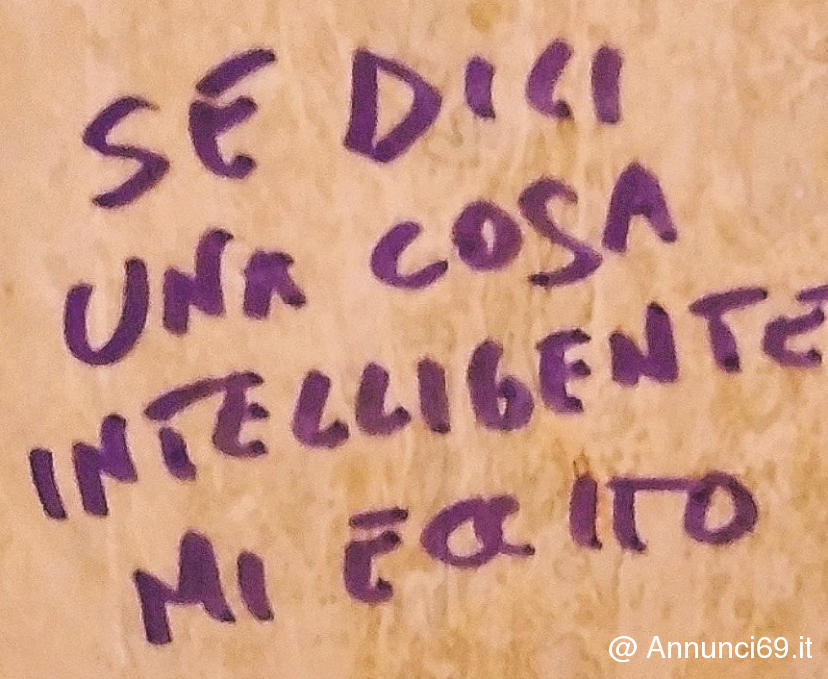 SE DICI
UNA COSA
INTELLIGENTE
MI ECCITO
@ Annunci69.it